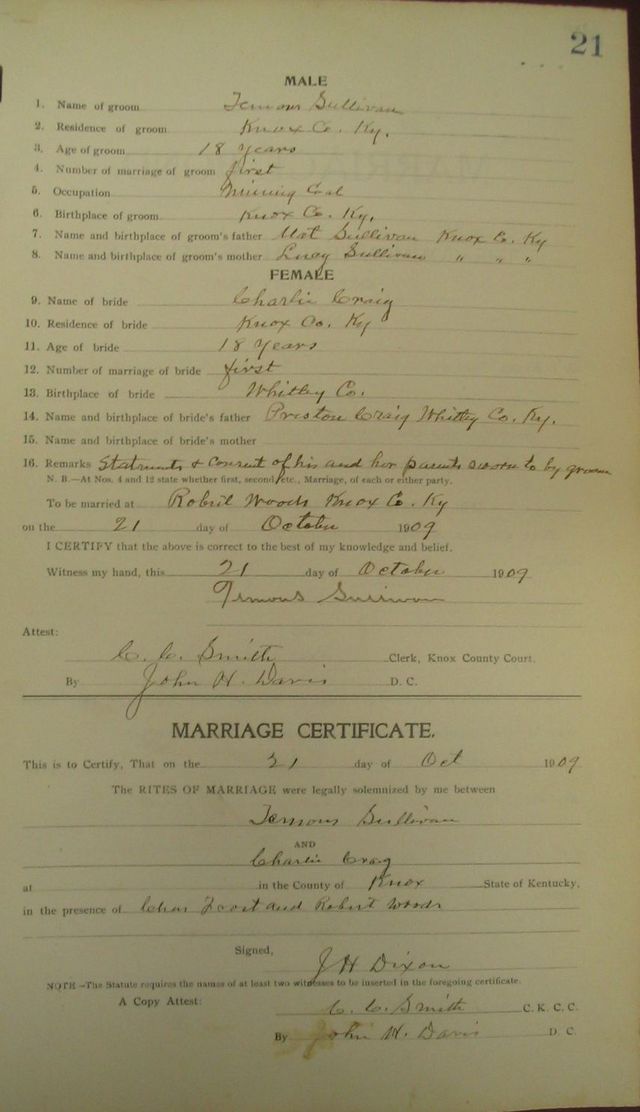 21
MALE
1. Name of groom Temous Sullivan
2. Residence of groom Knox Co. Ky.
3. Age of groom 18 years
4. Number of marriage of groom first
5. Occupation Mining Coal
6. Birthplace of groom Knox Co. Ky.
7. Name and birthplace of groom's father Mat Sullivan Knox Co. Ky
8. Name and birthplace of groom's mother Lucy Sullivan " " "
FEMALE
9. Name of bride Charlie Craig
10. Residence of bride Knox Co. Ky
11. Age of bride 18 Years
12. Number of marriage of bride first
13. Birthplace of bride Whitley Co.
14. Name and birthplace of bride's father Preston Craig Whitley Co. Ky.
15. Name and birthplace of bride's mother
16. Remarks Statments & consent of his and her parents sworn to by groom
N. B.—At Nos. 4 and 12 state whether first, second, etc., Marriage, of each or either party.
To be married at Robert Woods Knox Co. Ky
on the 21 day of October 1909
I CERTIFY that the above is correct to the best of my knowledge and belief.
Witness my hand, this 21 day of October 1909
Attest:
C. C. Smith Clerk, Knox County Court.
By John H. Davis D. C.
MARRIAGE CERTIFICATE.
This is to Certify, That on the 21 day of Oct 1909
The RITES OF MARRIAGE were legally solemnized by me between
Temous Sullivan
AND
Charlie Craig
at in the County of Knox State of Kentucky,
in the presence of Chas and Robert Woods
Signed,
J H Dixon
NOTE—The Statute requires the names of at least two witnesses to be inserted in the foregoing certificate.
A Copy Attest: C. C. Smith C. K. C. C.
By John H. Davis D C.